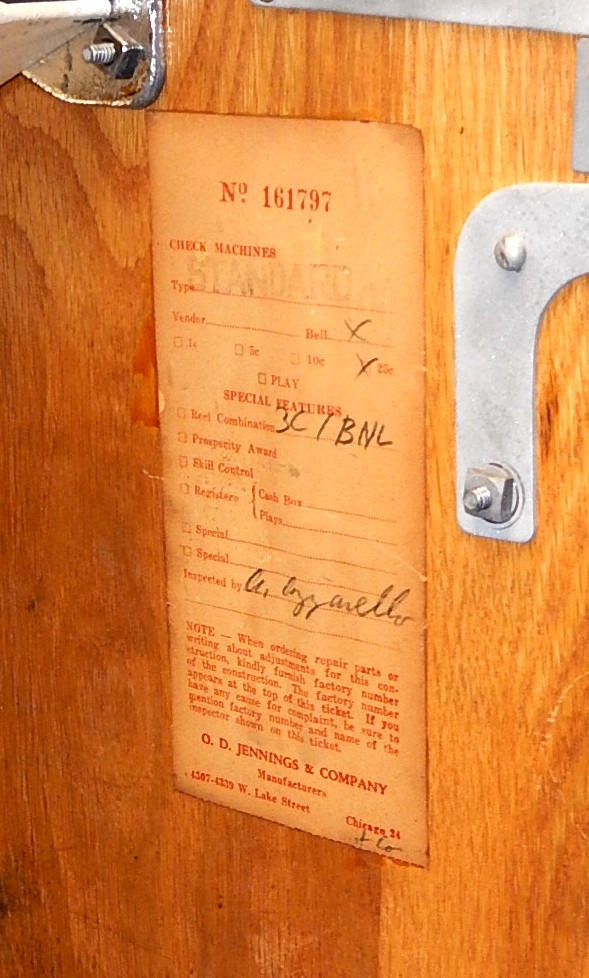 Nº 161797
CHECK MACHINES
Type STANDARD
Vendor Bell X
☐ 1c ☐ 5c ☐ 10c X 25c
☐ PLAY
SPECIAL FEATURES
☐ Reel Combination 3C/BNL
☐ Prosperity Award
☐ Skill Control
☐ Registers { Cash Box
Plays
☐ Special
☐ Special
Inspected by
NOTE — When ordering repair parts or
writing about adjustments for this con-
struction, kindly furnish factory number
of the construction. The factory number
appears at the top of this ticket. If you
have any cause for complaint, be sure to
mention factory number and name of the
inspector shown on this ticket.
O. D. JENNINGS & COMPANY
Manufacturers
4307-4339 W. Lake Street
Chicago 24